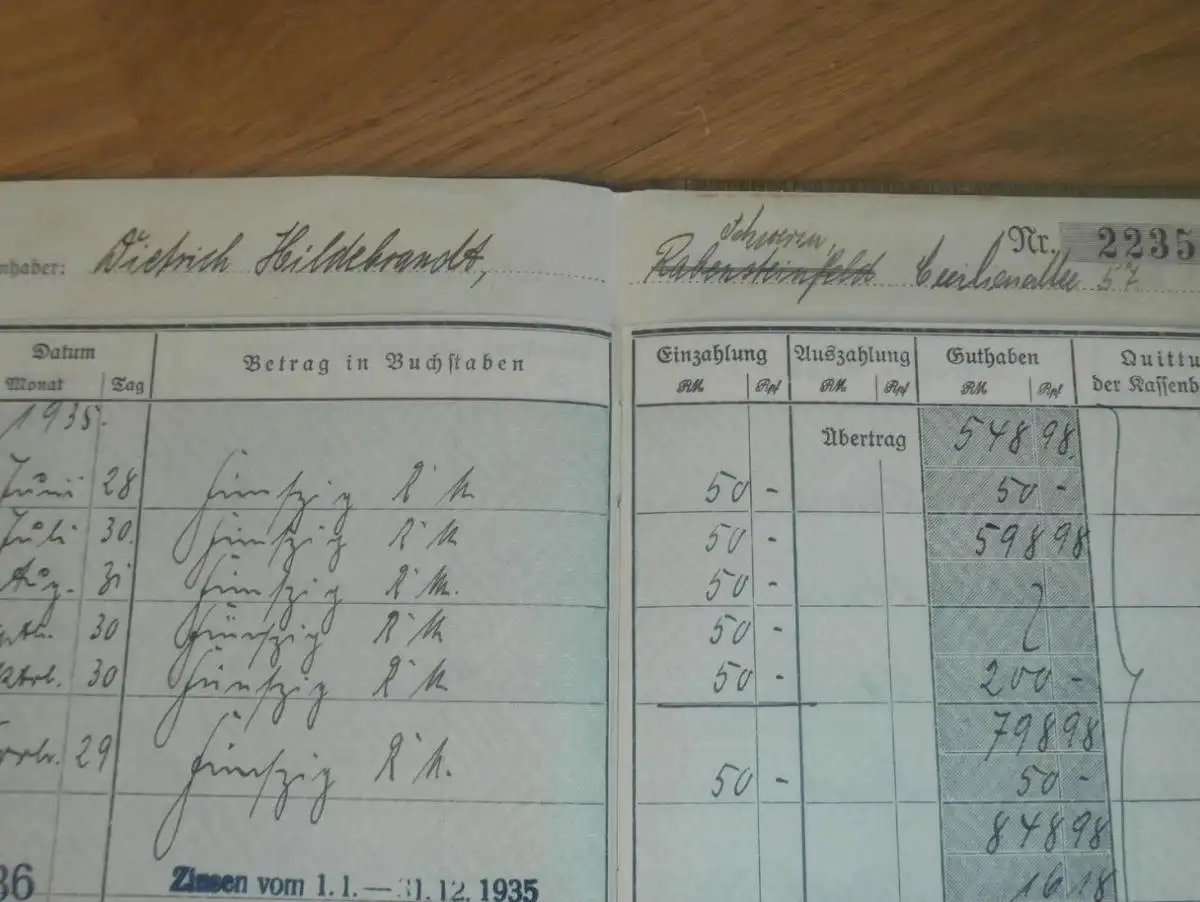 nhaber: Dietrich Hildebrandt,
Schwerin,
Rabensteinfeld Cecilienallee 57
Nr. 2235
Datum Betrag in Buchstaben Einzahlung Auszahlung Guthaben Quittu
Monat Tag RM Rpf RM Rpf RM Rpf der Kassenb
1935. Übertrag 548 98.
Juni 28 fünfzig RM 50 - 50 -
Juli 30. fünfzig RM 50 - 598 98
Aug. 31 fünfzig RM. 50 -
ptb. 30 fünfzig RM 50 -
ktrb. 30 fünfzig RM 50 - 200 -
798 98
29 fünfzig RM. 50 - 50 -
848 98
36 Zinsen vom 1.1.—31.12.1935 16 18